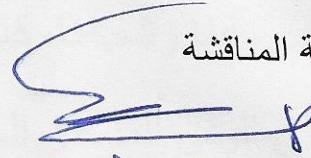 ة المناقشة